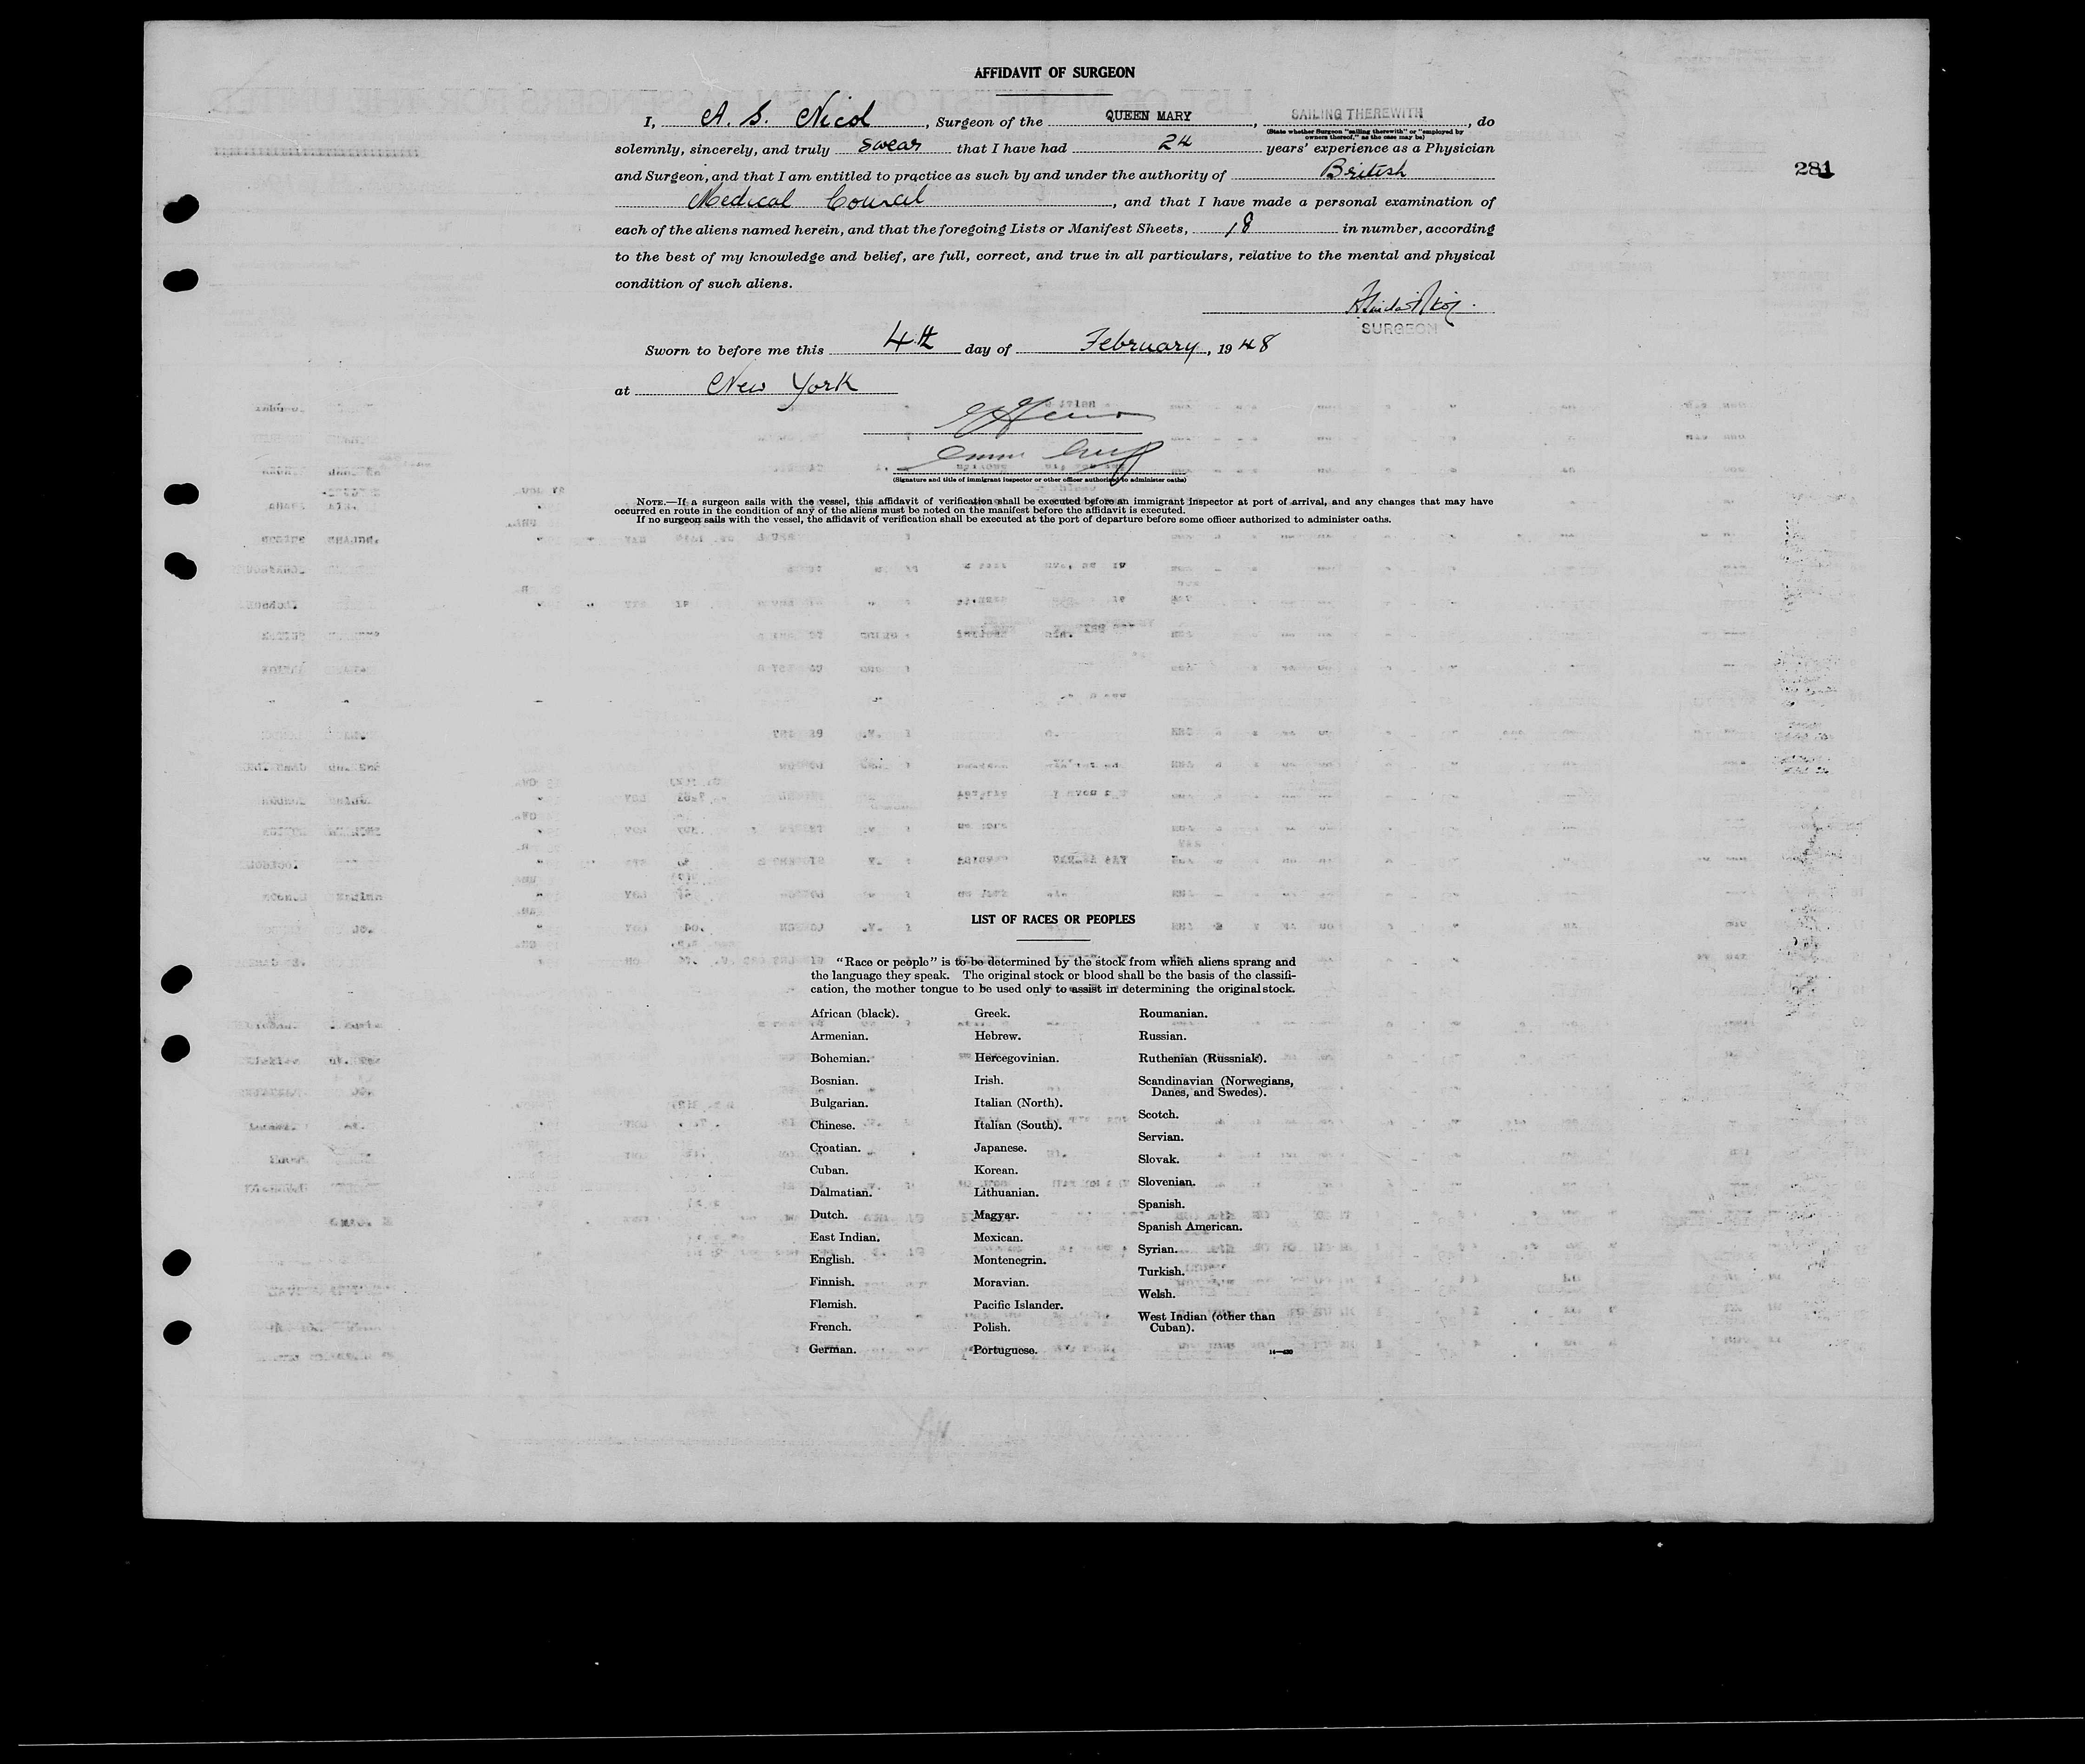 AFFIDAVIT OF SURGEON
I, A. S. Nicol, Surgeon of the QUEEN MARY, SAILING THEREWITH, do
(State whether Surgeon "sailing therewith" or "employed by
owners thereof," as the case may be)
solemnly, sincerely, and truly swear that I have had 24 years' experience as a Physician
and Surgeon, and that I am entitled to practice as such by and under the authority of British
281
Medical Council, and that I have made a personal examination of
each of the aliens named herein, and that the foregoing Lists or Manifest Sheets, 18 in number, according
to the best of my knowledge and belief, are full, correct, and true in all particulars, relative to the mental and physical
condition of such aliens.
SURGEON
Sworn to before me this 4th day of February, 1948
at New York
(Signature and title of immigrant inspector or other officer authorized to administer oaths)
NOTE.—If a surgeon sails with the vessel, this affidavit of verification shall be executed before an immigrant inspector at port of arrival, and any changes that may have
occurred en route in the condition of any of the aliens must be noted on the manifest before the affidavit is executed.
If no surgeon sails with the vessel, the affidavit of verification shall be executed at the port of departure before some officer authorized to administer oaths.
LIST OF RACES OR PEOPLES
"Race or people" is to be determined by the stock from which aliens sprang and
the language they speak. The original stock or blood shall be the basis of the classifi-
cation, the mother tongue to be used only to assist in determining the original stock.
African (black).
Armenian.
Bohemian.
Bosnian.
Bulgarian.
Chinese.
Croatian.
Cuban.
Dalmatian.
Dutch.
East Indian.
English.
Finnish.
Flemish.
French.
German.
Greek.
Hebrew.
Hercegovinian.
Irish.
Italian (North).
Italian (South).
Japanese.
Korean.
Lithuanian.
Magyar.
Mexican.
Montenegrin.
Moravian.
Pacific Islander.
Polish.
Portuguese.
Roumanian.
Russian.
Ruthenian (Russniak).
Scandinavian (Norwegians,
Danes, and Swedes).
Scotch.
Servian.
Slovak.
Slovenian.
Spanish.
Spanish American.
Syrian.
Turkish.
Welsh.
West Indian (other than
Cuban).